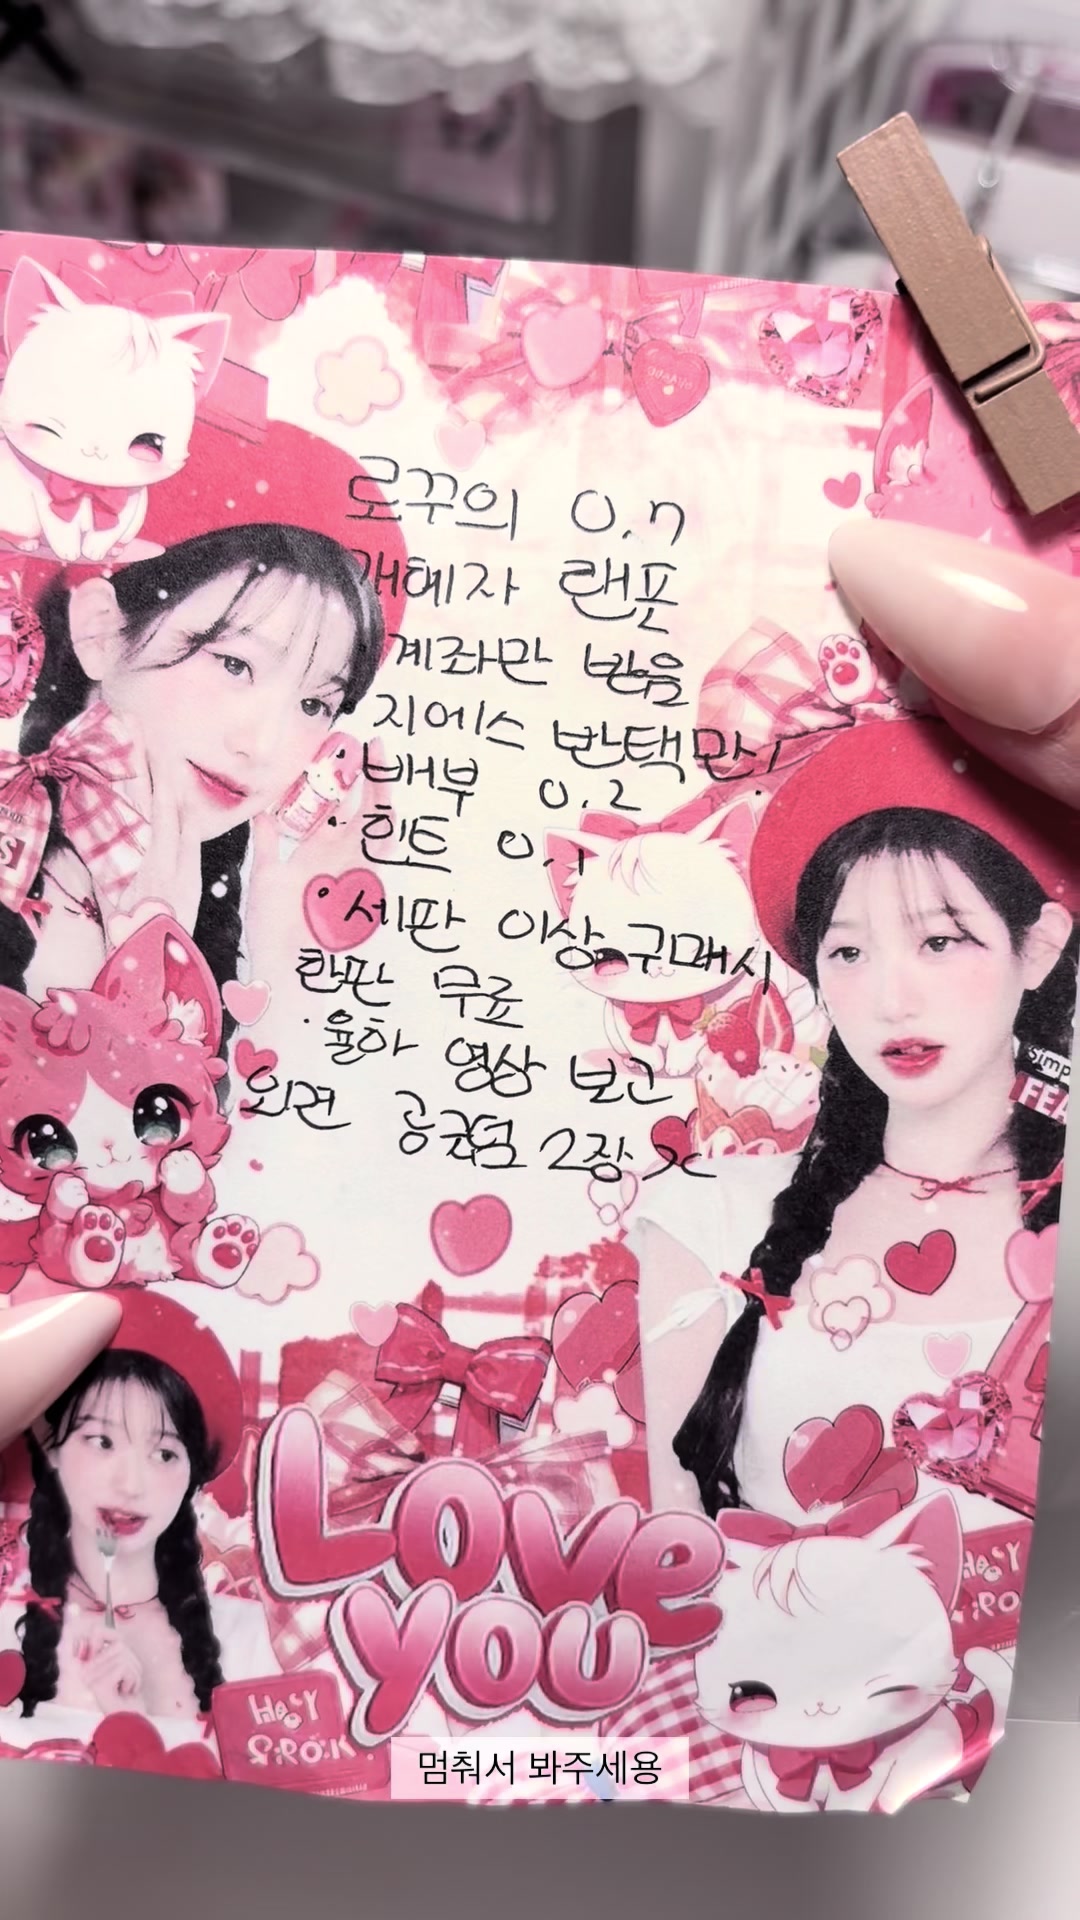 로꾸의 0.7
개혜자 랜포
계좌만 받음
지에스 반택만!
·배부 0.2
·힌트 0.1
·세판 이상 구매시
한판 무료
·율하 영상 보고
외견 공굿덤 2장 x
Love
you
HEY
simp
FEA
S
멈춰서 봐주세용